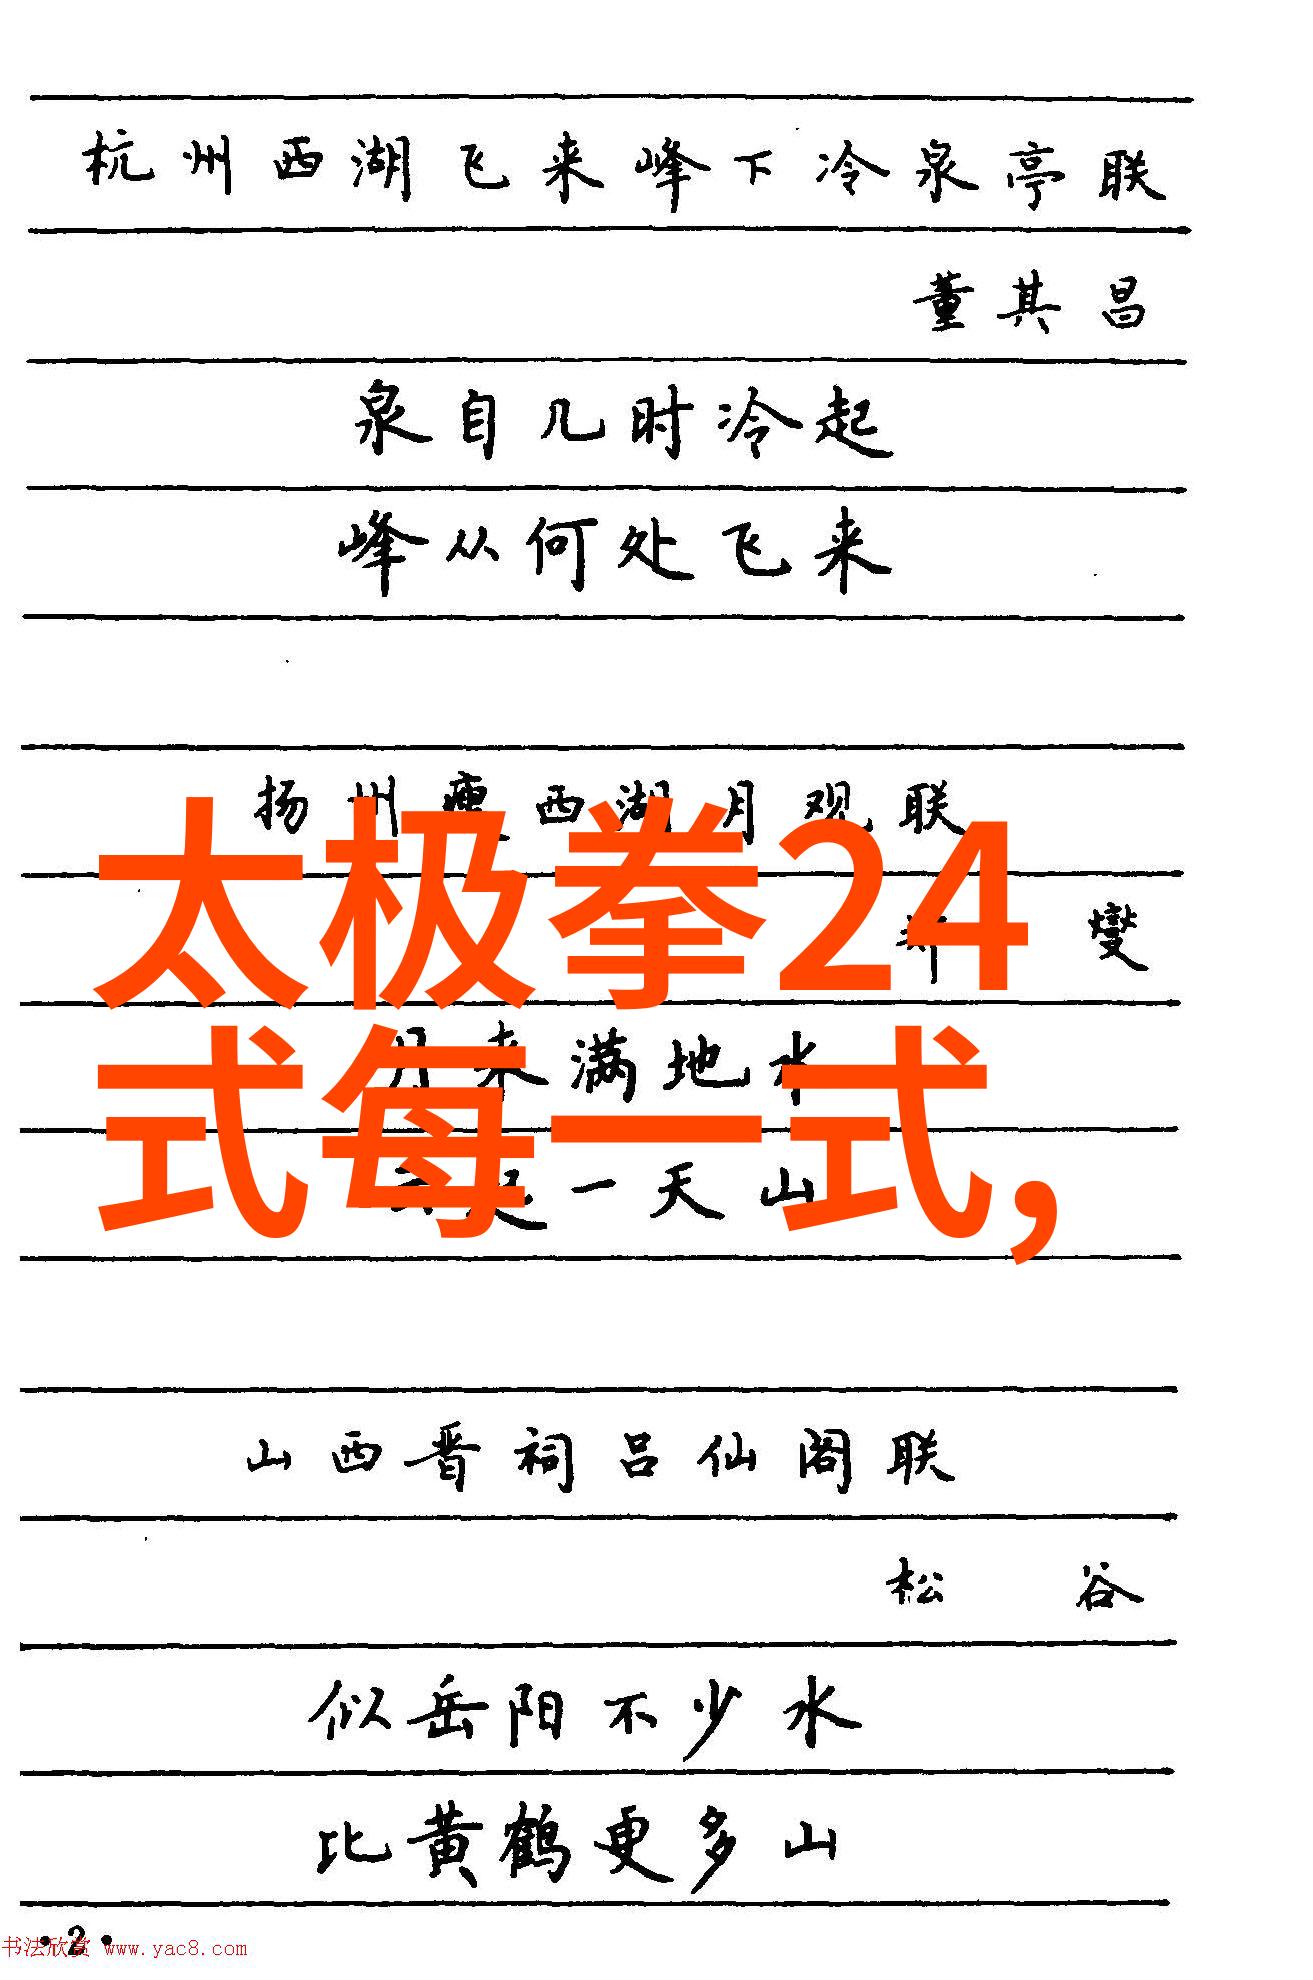 杭州西湖飞来峰下冷泉亭联
董其昌
泉自几时冷起
峰从何处飞来
扬州瘦西湖月观联
郑 燮
太极拳24
月来满地水
式每一式,
云起一天山
山西晋祠吕仙阁联
松 谷
似岳阳不少水
比黄鹤更多山
·2·
书法欣赏 www.yac8.com